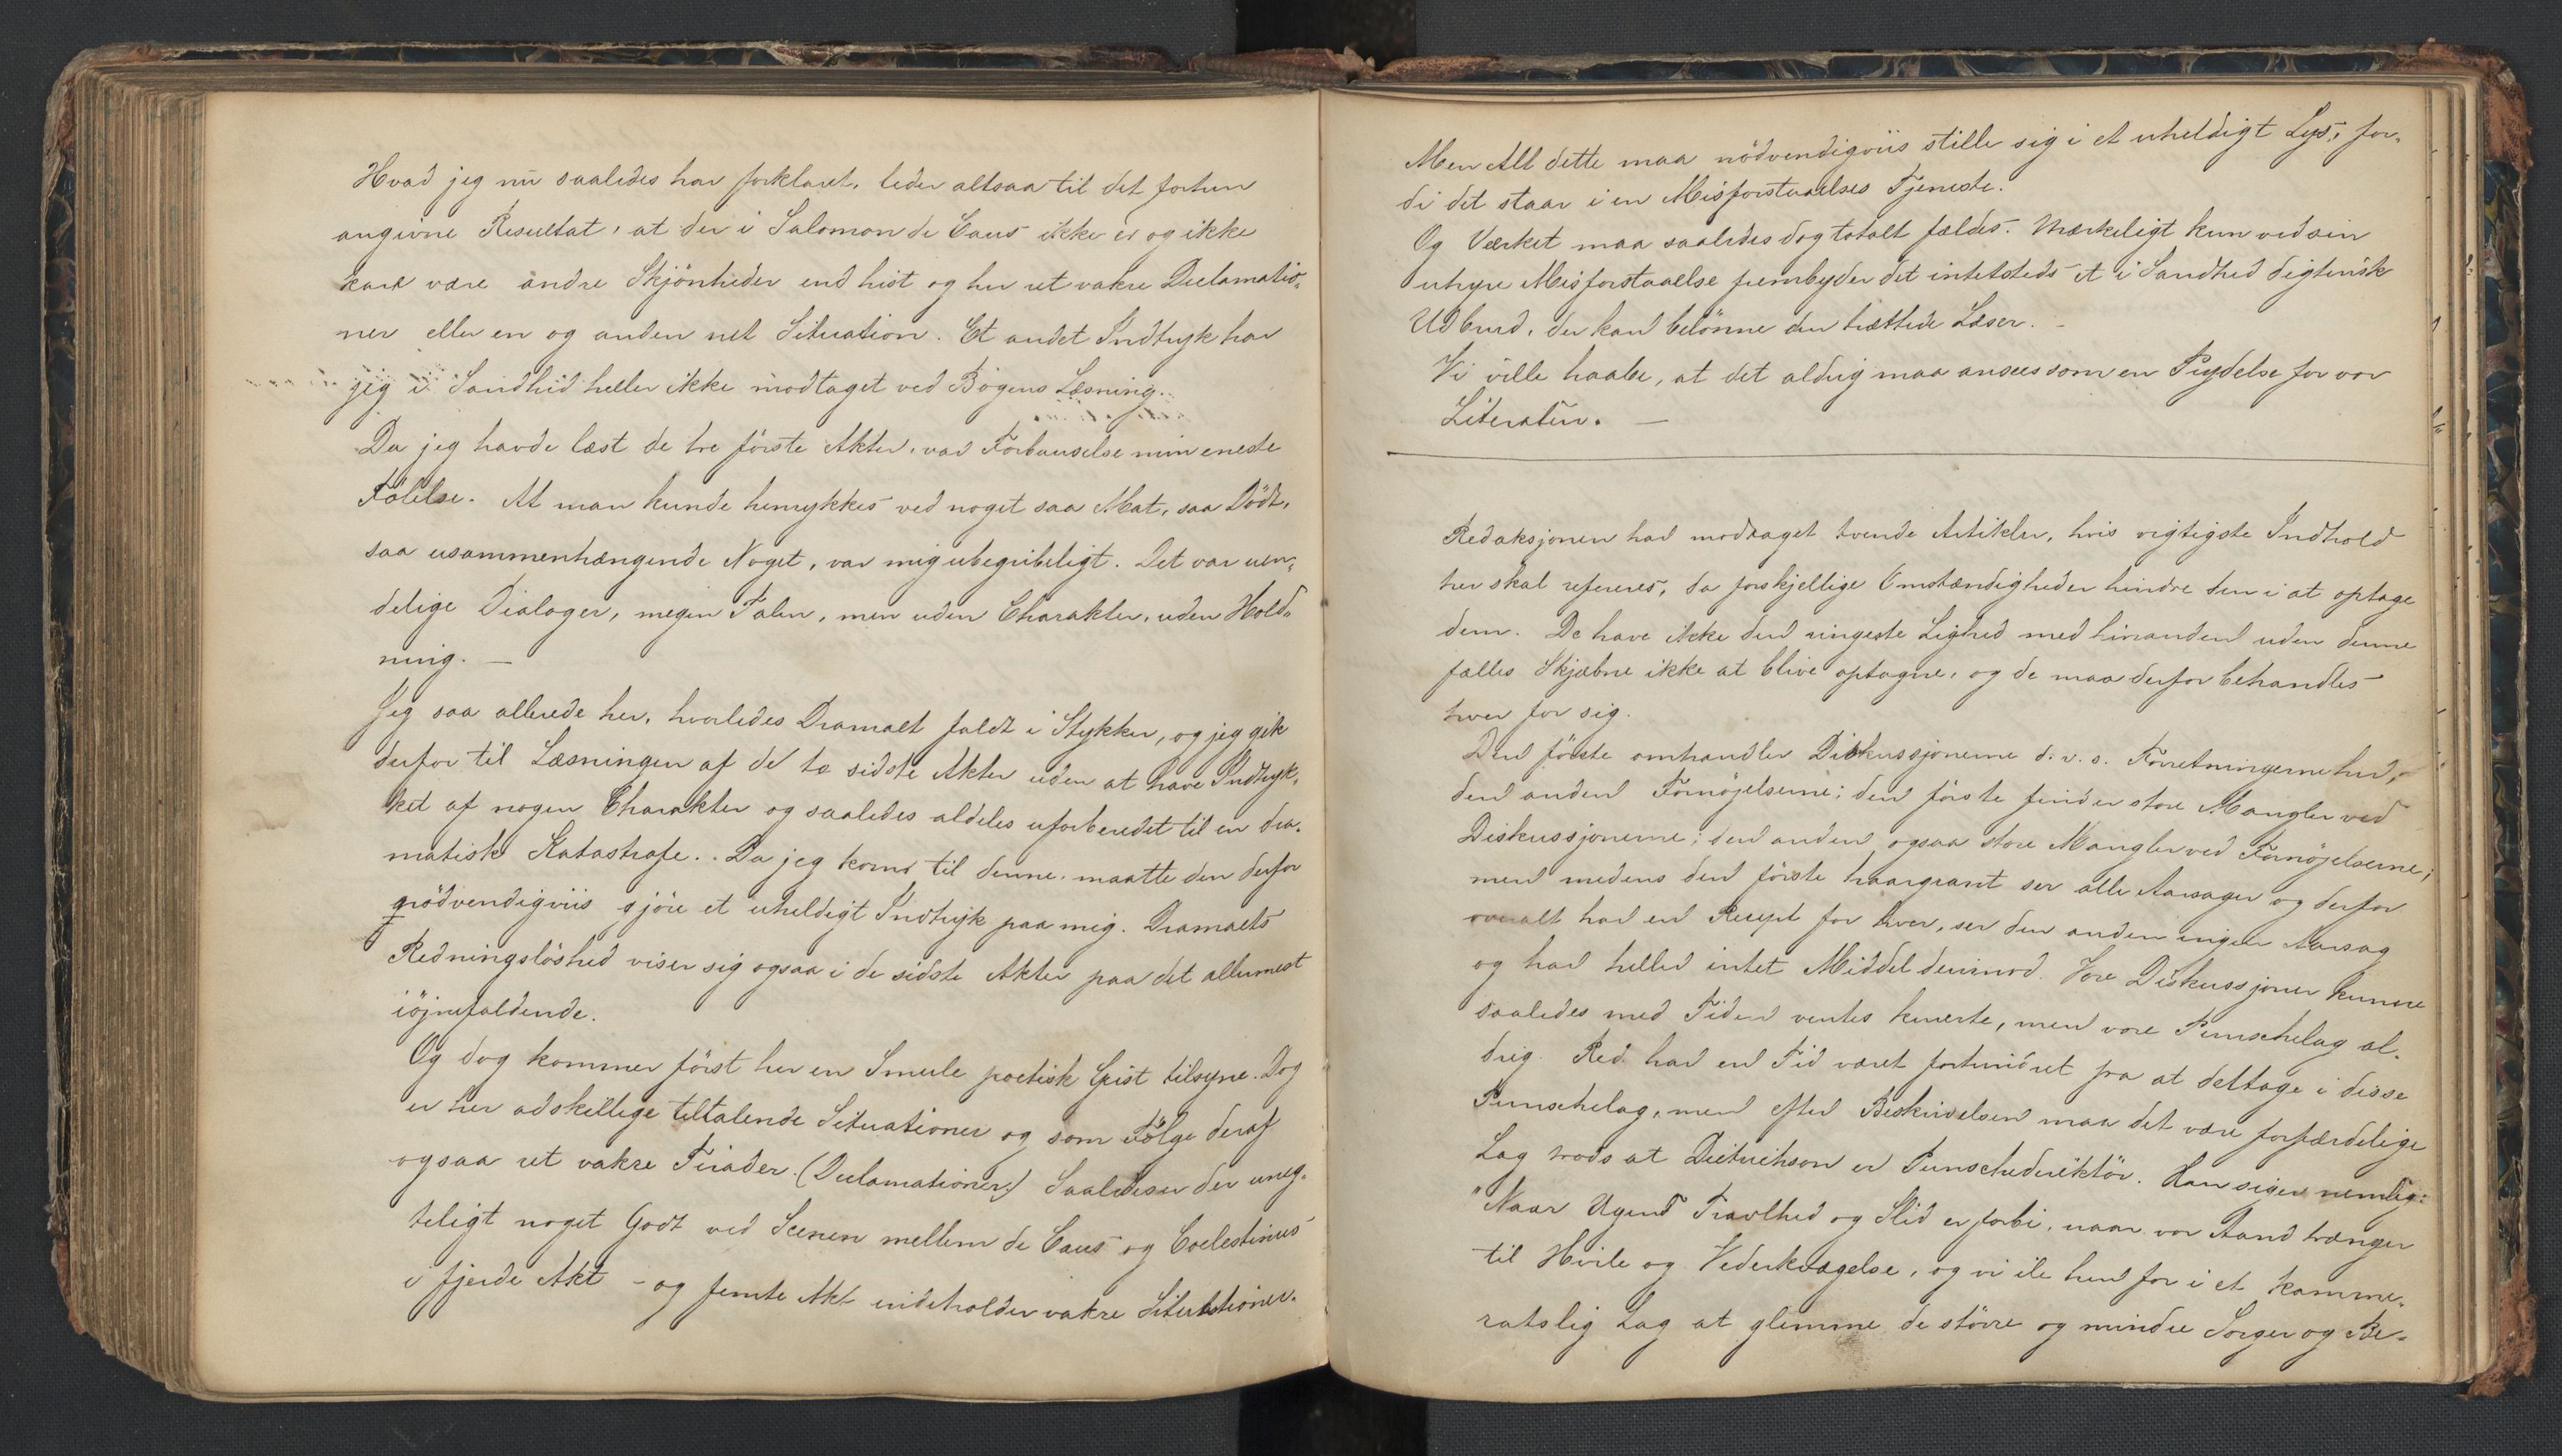 Hvad jeg nu saaledes har forklaret, leder altsaa til det forhen
angivne Resultat, at der i Salomon de Caus ikke er og ikke
kan være andre Skjönheder end hist og her ret vakre Declamatio-
ner eller en og anden net Situation. Et andet Indtryk har
jeg i Sandhed heller ikke modtaget ved Bogens Læsning.
Da jeg havde læst de tre förste Akter, var Forbauselse min eneste
Fölelse. At man kunde henrykkes ved noget saa Mat, saa Dödt,
saa usammenhængende Noget, var mig ubegribeligt. Det var uen-
delige Dialoger, megen Talen, men uden Charakter, uden Hold-
ning. —
Jeg saa allerede her, hvorledes Dramaet faldt i Stykker, og jeg gik
derfor til Læsningen af de to sidste Akter uden at have Indtryk-
ket af nogen Charakter og saaledes aldeles uforberedet til en dra-
matisk Katastrofe. Da jeg kom til denne, maatte den derfor
nödvendigviis gjöre et uheldigt Indtryk paa mig. Dramaets
Redningslöshed viser sig ogsaa i de sidste Akter paa det allermest
iöjnefaldende.
Og dog kommer först her en Smule poetisk Geist tilsyne. Dog
er her adskellige tiltalende Situationer og som Fölge deraf
ogsaa ret vakre Tirader (Declamationer) Saaledes er der uneg-
teligt noget Godt ved Scenen mellem de Caus og Coelestinus
i fjerde Akt - og femte Akt indeholder vakre Situationer.
Men Alt dette maa nödvendigviis stille sig i et uheldigt Lys, for-
di det staar i en Misforstaaelses Tjeneste.
Og Værket maa saaledes dog totalt fældes. Mærkeligt kun ved sin
uhyre Misforstaaelse frembyder det intetsteds et i Sandhed digterisk
Udbrud, der kan belönne den trættede Læser. -
Vi ville haabe, at det aldrig maa ansees som en Prydelse for vor
Literatur. —
Redaksjonen har modtaget tvende Artikler, hvis vigtigste Indhold
her skal refereres, da forskjellige Omstændigheder hindre den i at optage
dem. De have ikke den ringeste Lighed med hinanden uden denne
fælles Skjæbne ikke at blive optagne, og de maa derfor behandles
hver for sig.
Den förste omhandler Diskussjonerne d. v. s. Forretningerne her,
den anden Fornöjelserne; den förste finder store Mangler ved
Diskussjonerne; den anden ogsaa store Mangler ved Fornöjelserne;
men medens den förste haargrant ser alle Aarsager og derfor
overalt har en Recept for hver, ser den anden ingen Aarsag
og har heller intet Middel derimod. Vore Diskussjoner kunne
saaledes med Tiden ventes kurerte, men vore Punschelag al-
drig. Red. har en Tid været forhindret fra at deltage i disse
Punschelag, men efter Beskrivelsen maa det være forfærdelige
Lag trods at Dietrichson er Punschedirektör. Han siger nemlig:
"Naar Ugens Travlhed og Slid er forbi, naar vor Aand trænger
til Hvile og Vederkvægelse, og vi ile hen for i et kamme-
ratslig Lag at glemme de större og mindre Sorger og Be-